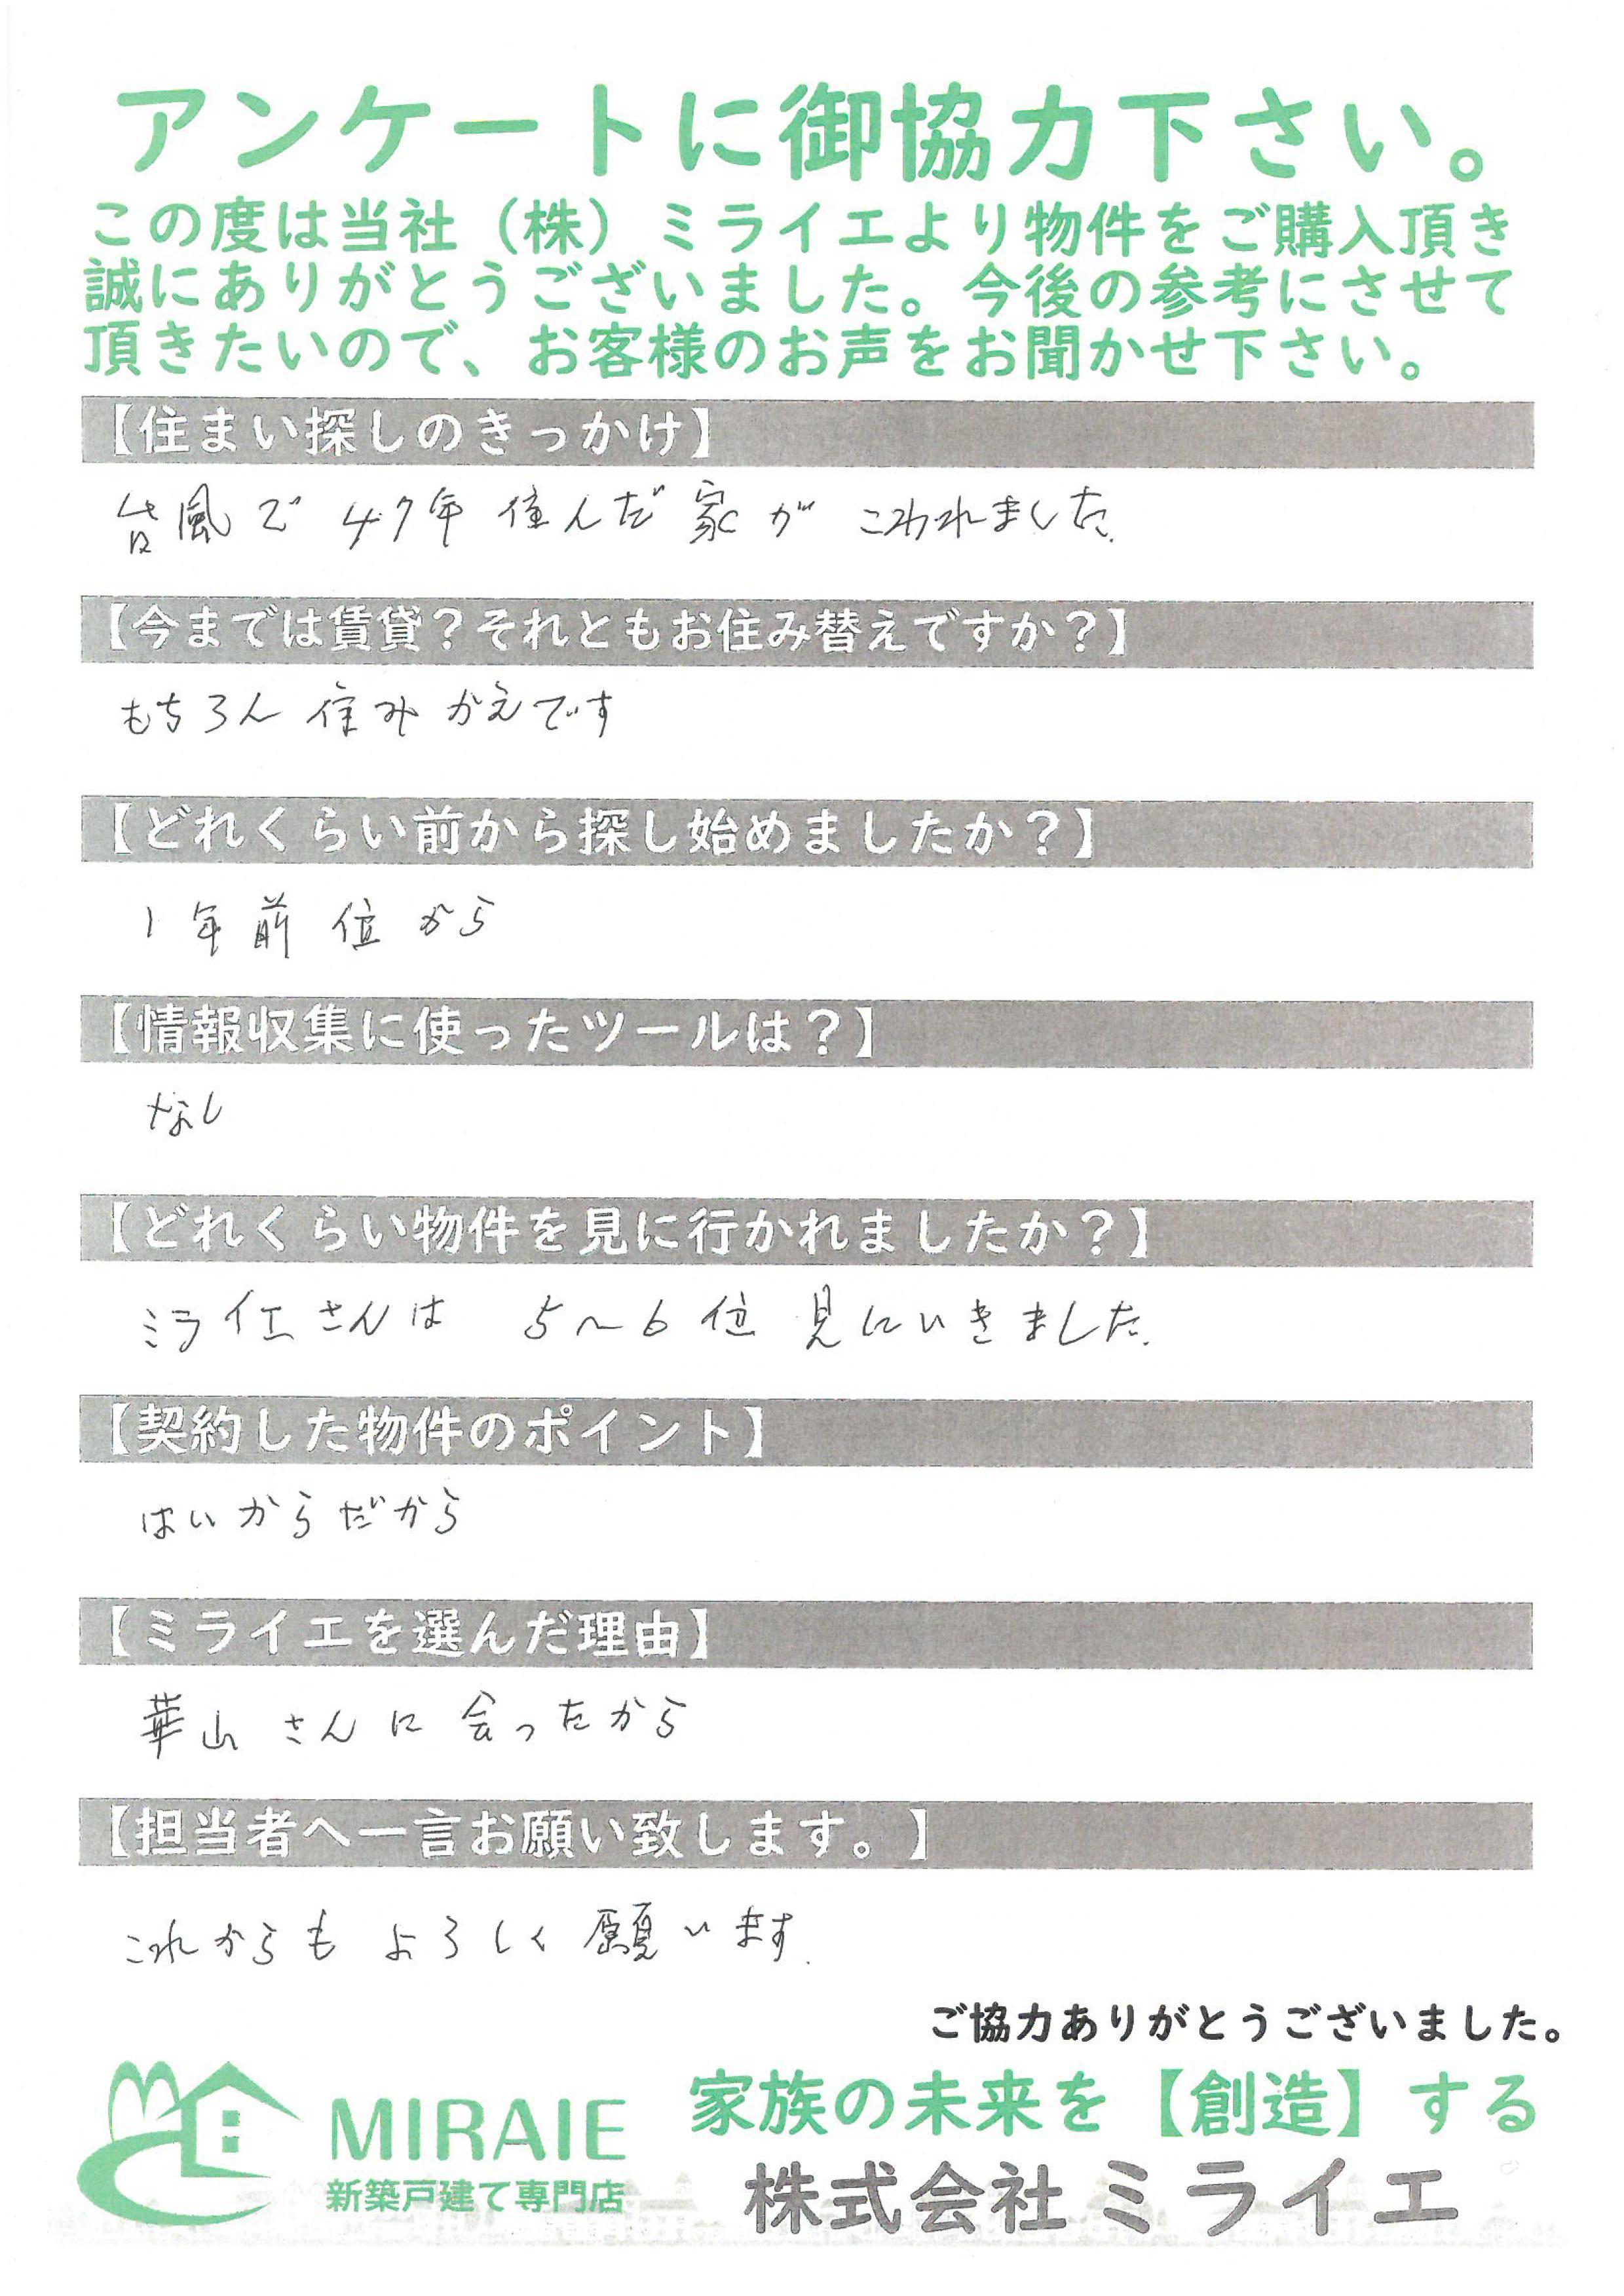 アンケートに御協力下さい。
この度は当社（株）ミライエより物件をご購入頂き
誠にありがとうございました。今後の参考にさせて
頂きたいので、お客様のお声をお聞かせ下さい。
【住まい探しのきっかけ】
台風で 47年 住んだ 家が こわれました.
【今までは賃貸？それともお住み替えですか？】
もちろん 住み かえです
【どれくらい前から探し始めましたか？】
1年前位から
【情報収集に使ったツールは？】
なし
【どれくらい物件を見に行かれましたか？】
ミライエさんは 5〜6位 見にいきました.
【契約した物件のポイント】
はいからだから
【ミライエを選んだ理由】
華山さんに会ったから
【担当者へ一言お願い致します。】
これからも よろしく 願います.
ご協力ありがとうございました。
MIRAIE
新築戸建て専門店
家族の未来を【創造】する
株式会社ミライエ